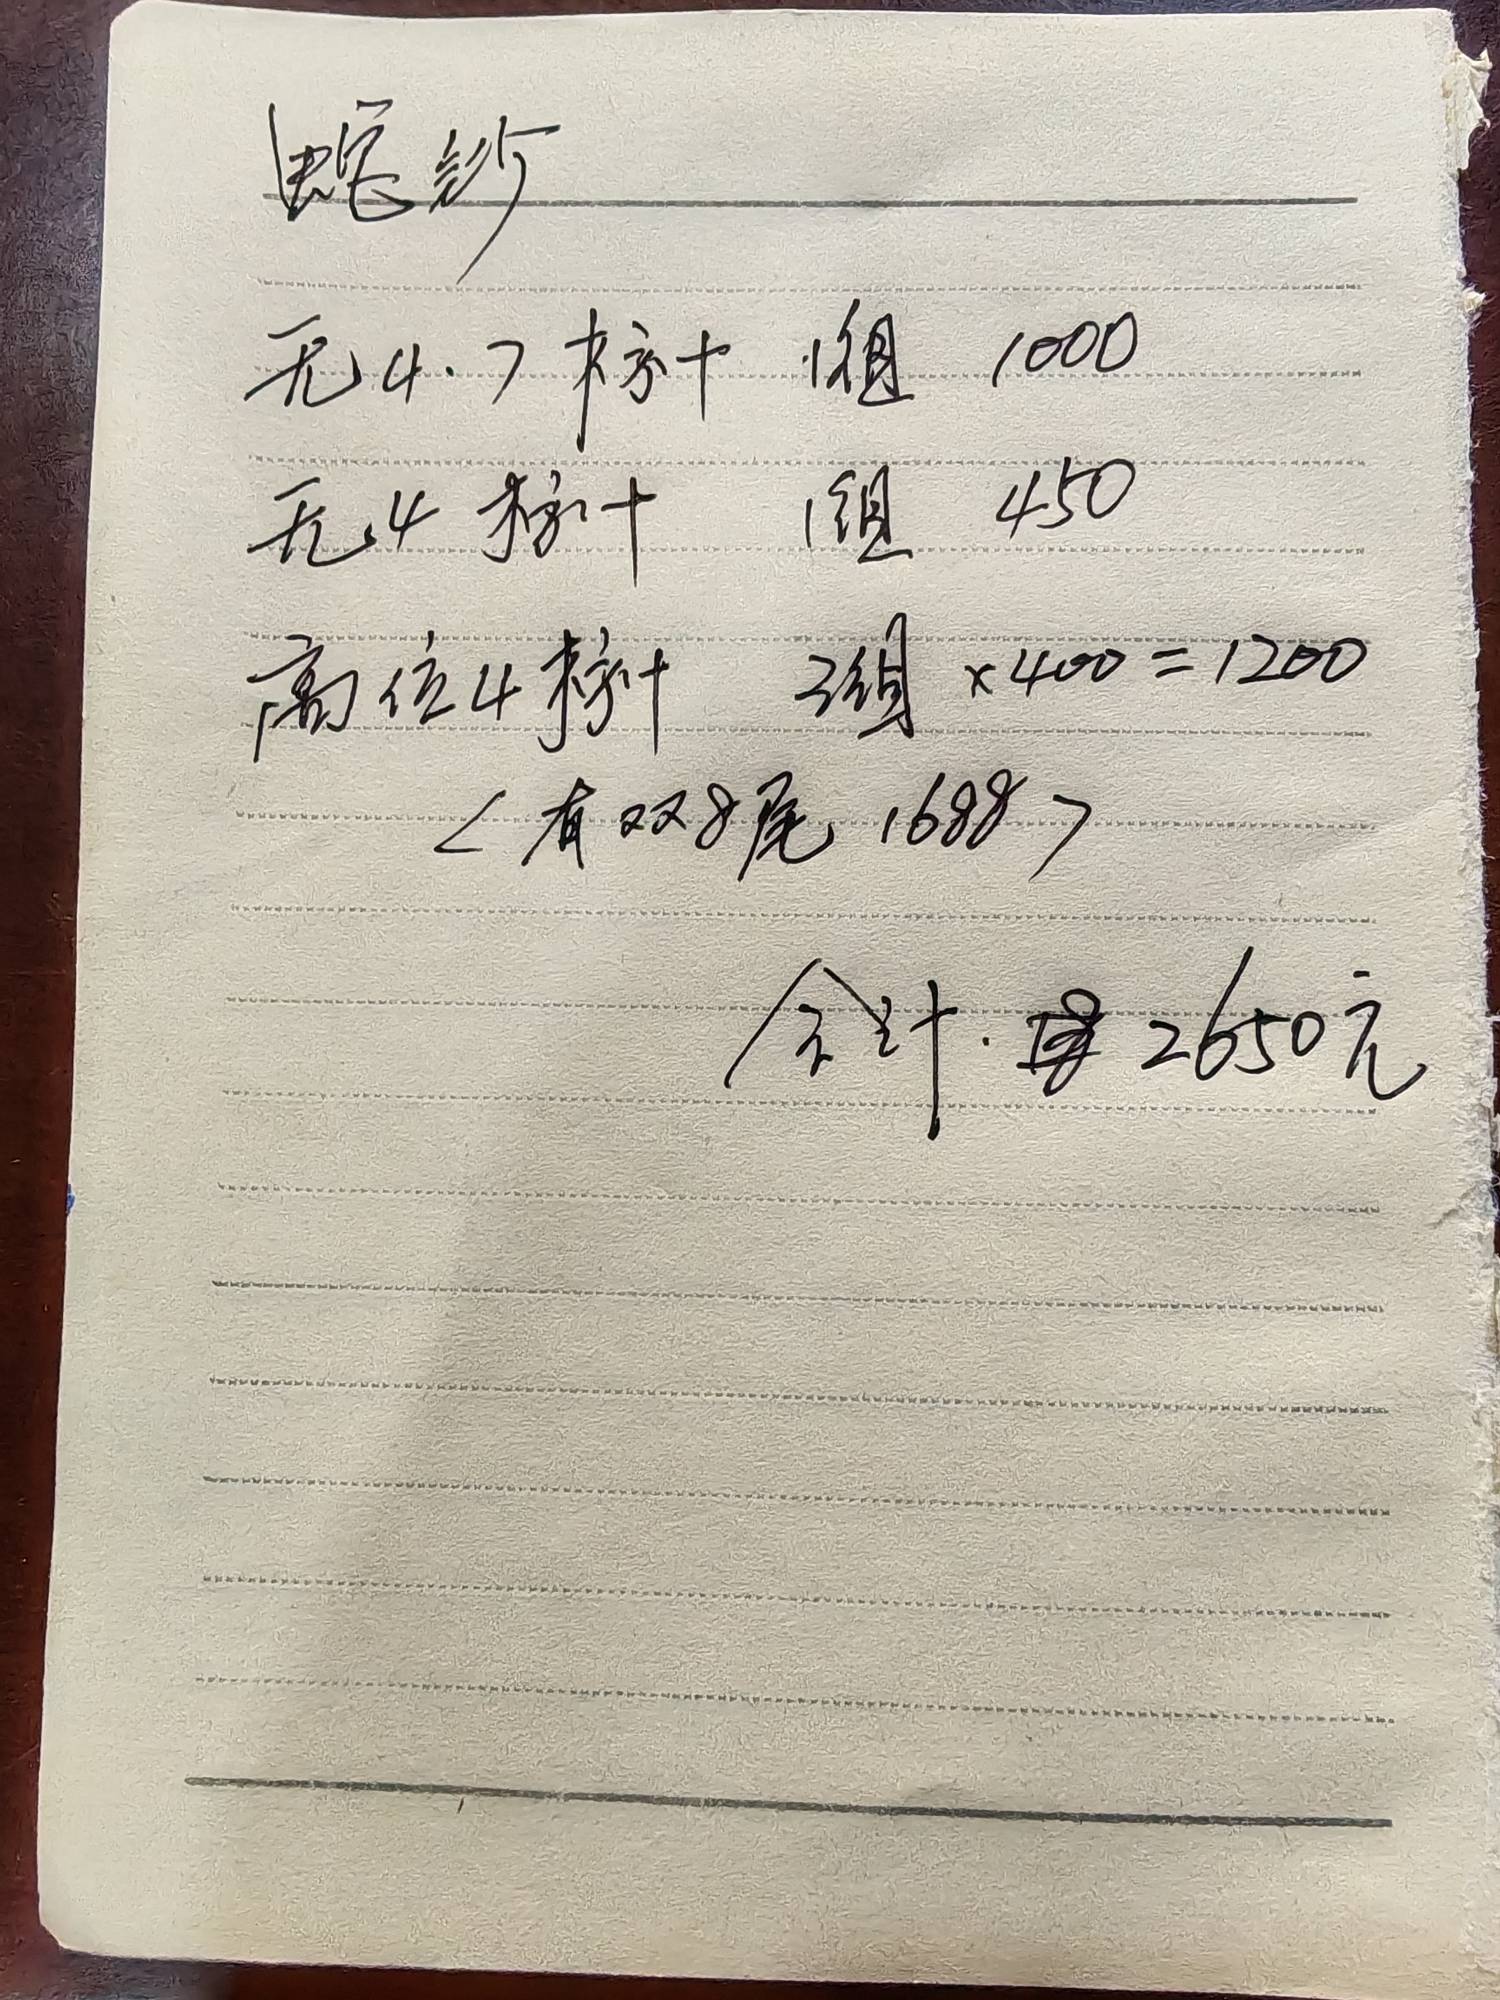 蛇钞
无4.7标十 1组 1000
无4标十 1组 450
高位4标十 3组 ×400=1200
<有双8尾 1688>
合计. 2650元